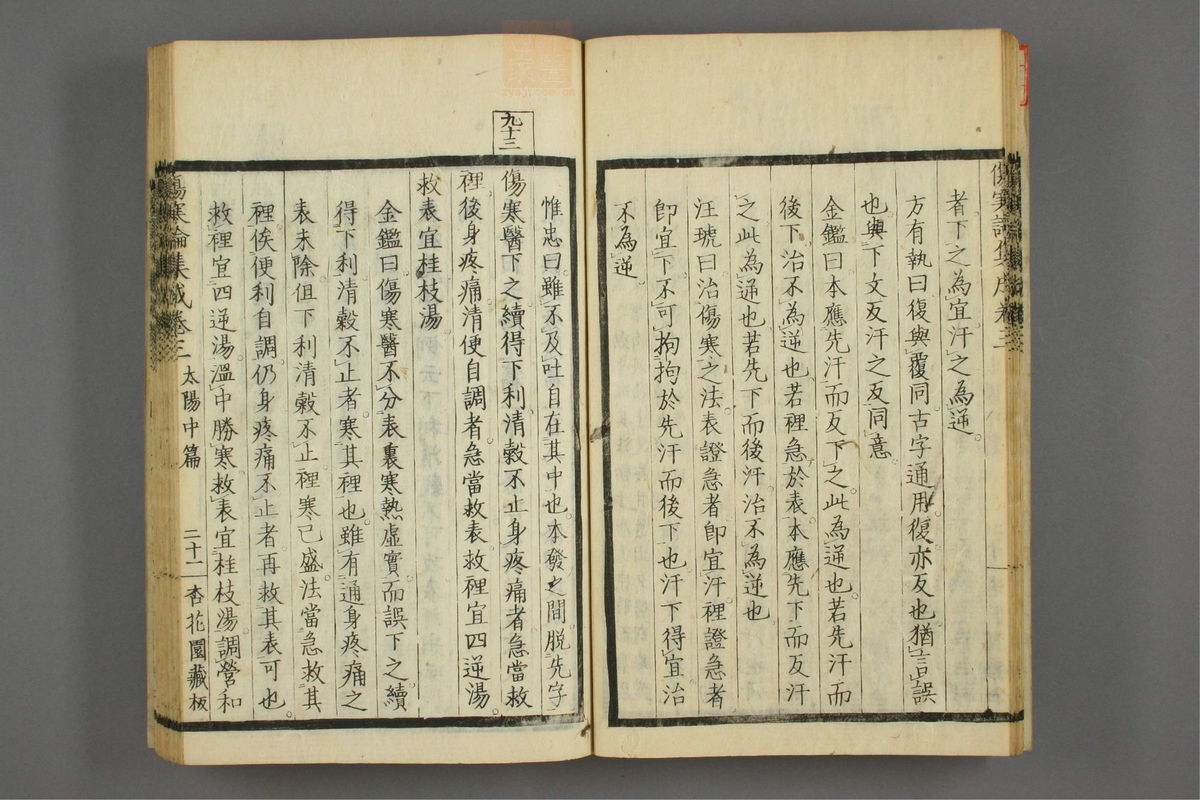 者下之為宜汗之為逆。
方有執曰復與覆同古字通用復亦反也猶言誤
也與下文反汗之反同意
金鑑曰本應先汗而反下之此為逆也若先汗而
後下治不為逆也若裡急於表本應先下而反汗
之此為逆也若先下而後汗治不為逆也
汪琥曰治傷寒之法表證急者卽宜汗裡證急者
卽宜下不可拘拘於先汗而後下也汗下得宜治
不為逆
九十三
惟忠曰雖不及吐自在其中也本發之間脫先字
傷寒醫下之續得下利清穀不止身疼痛者急當救
裡後身疼痛清便自調者急當救表救裡宜四逆湯
救表宜桂枝湯
金鑑曰傷寒醫不分表裏寒熱虛實而誤下之續
得下利清穀不止者寒其裡也雖有通身疼痛之
表未除但下利清穀不止裡寒已盛法當急救其
裡俟便利自調仍身疼痛不止者再救其表可也
救裡宜四逆湯溫中勝寒救表宜桂枝湯調營和
傷寒論集成卷三 太陽中篇 二十二 杏花園藏板